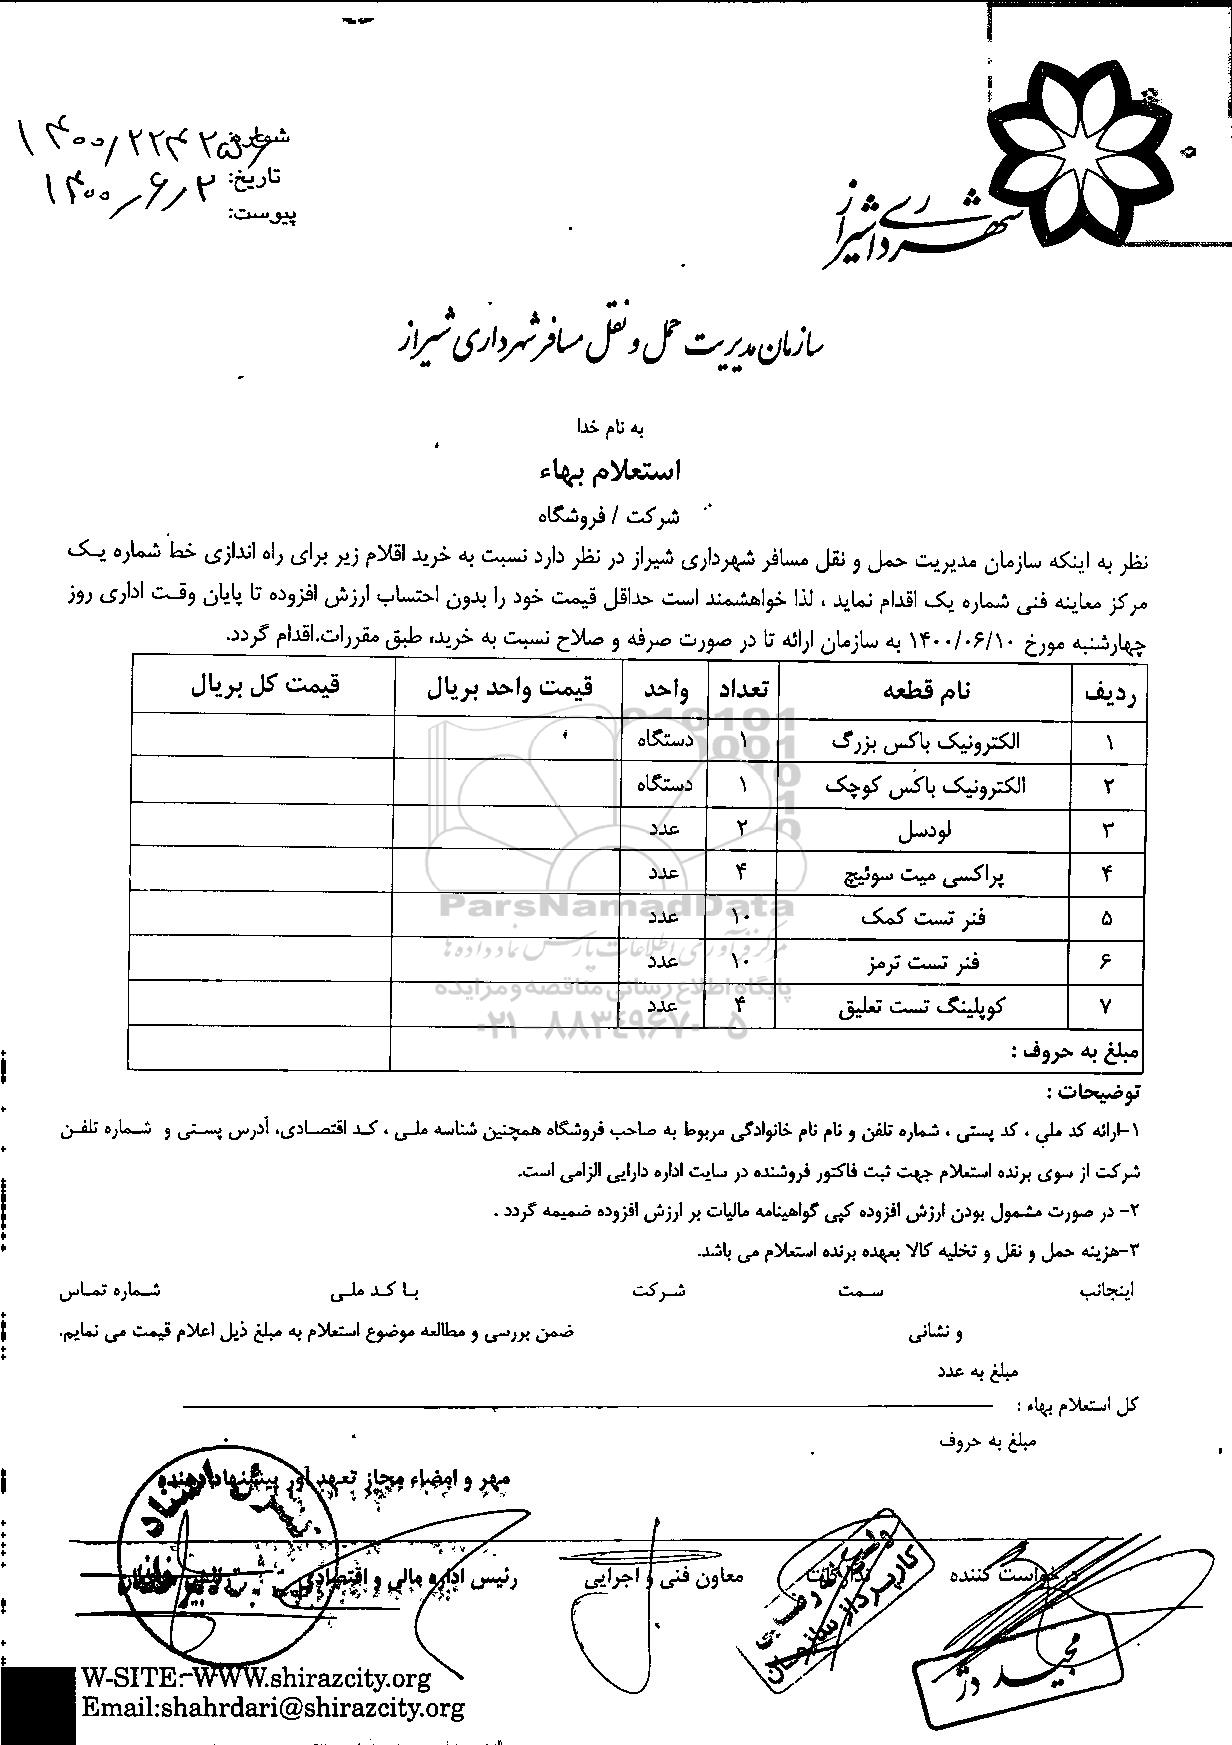 شماره:
تاریخ: ۱۴۰۰/۶/۲
پیوست:
شهرداری شیراز
سازمان مدیریت حمل و نقل مسافر شهرداری شیراز
به نام خدا
استعلام بهاء
شرکت / فروشگاه
نظر به اینکه سازمان مدیریت حمل و نقل مسافر شهرداری شیراز در نظر دارد نسبت به خرید اقلام زیر برای راه اندازی خط شماره یک
مرکز معاینه فنی شماره یک اقدام نماید ، لذا خواهشمند است حداقل قیمت خود را بدون احتساب ارزش افزوده تا پایان وقت اداری روز
چهارشنبه مورخ ۱۴۰۰/۰۶/۱۰ به سازمان ارائه تا در صورت صرفه و صلاح نسبت به خرید، طبق مقررات.اقدام گردد.
ردیف نام قطعه تعداد واحد قیمت واحد بریال قیمت کل بریال
۱ الکترونیک باکس بزرگ ۱ دستگاه
۲ الکترونیک باکس کوچک ۱ دستگاه
۳ لودسل ۲ عدد
۴ پراکسی میت سوئیچ ۴ عدد
۵ فنر تست کمک ۱۰ عدد
۶ فنر تست ترمز ۱۰ عدد
۷ کوپلینگ تست تعلیق ۴ عدد
مبلغ به حروف :
ParsNamadData
مرکز فرآوری اطلاعات پارس نماد داده ها
پایگاه اطلاع رسانی مناقصه و مزایده
۰۲۱-۸۸۳۴۹۶۷۰-۵
توضیحات :
۱-ارائه کد ملی ، کد پستی ، شماره تلفن و نام نام خانوادگی مربوط به صاحب فروشگاه همچنین شناسه ملی ، کد اقتصادی، آدرس پستی و شماره تلفن
شرکت از سوی برنده استعلام جهت ثبت فاکتور فروشنده در سایت اداره دارایی الزامی است.
۲- در صورت مشمول بودن ارزش افزوده کپی گواهینامه مالیات بر ارزش افزوده ضمیمه گردد .
۳-هزینه حمل و نقل و تخلیه کالا بعهده برنده استعلام می باشد.
اینجانب سمت شرکت با کد ملی شماره تماس
و نشانی ضمن بررسی و مطالعه موضوع استعلام به مبلغ ذیل اعلام قیمت می نمایم.
مبلغ به عدد
کل استعلام بهاء :
مبلغ به حروف
مهر و امضاء مجاز تعهد آور پیشنهاددهنده
درخواست کننده تدارکات معاون فنی و اجرایی رئیس اداره مالی و اقتصادی
کارپرداز سازمان
مجید دژ
W-SITE:-WWW.shirazcity.org
Email:shahrdari@shirazcity.org